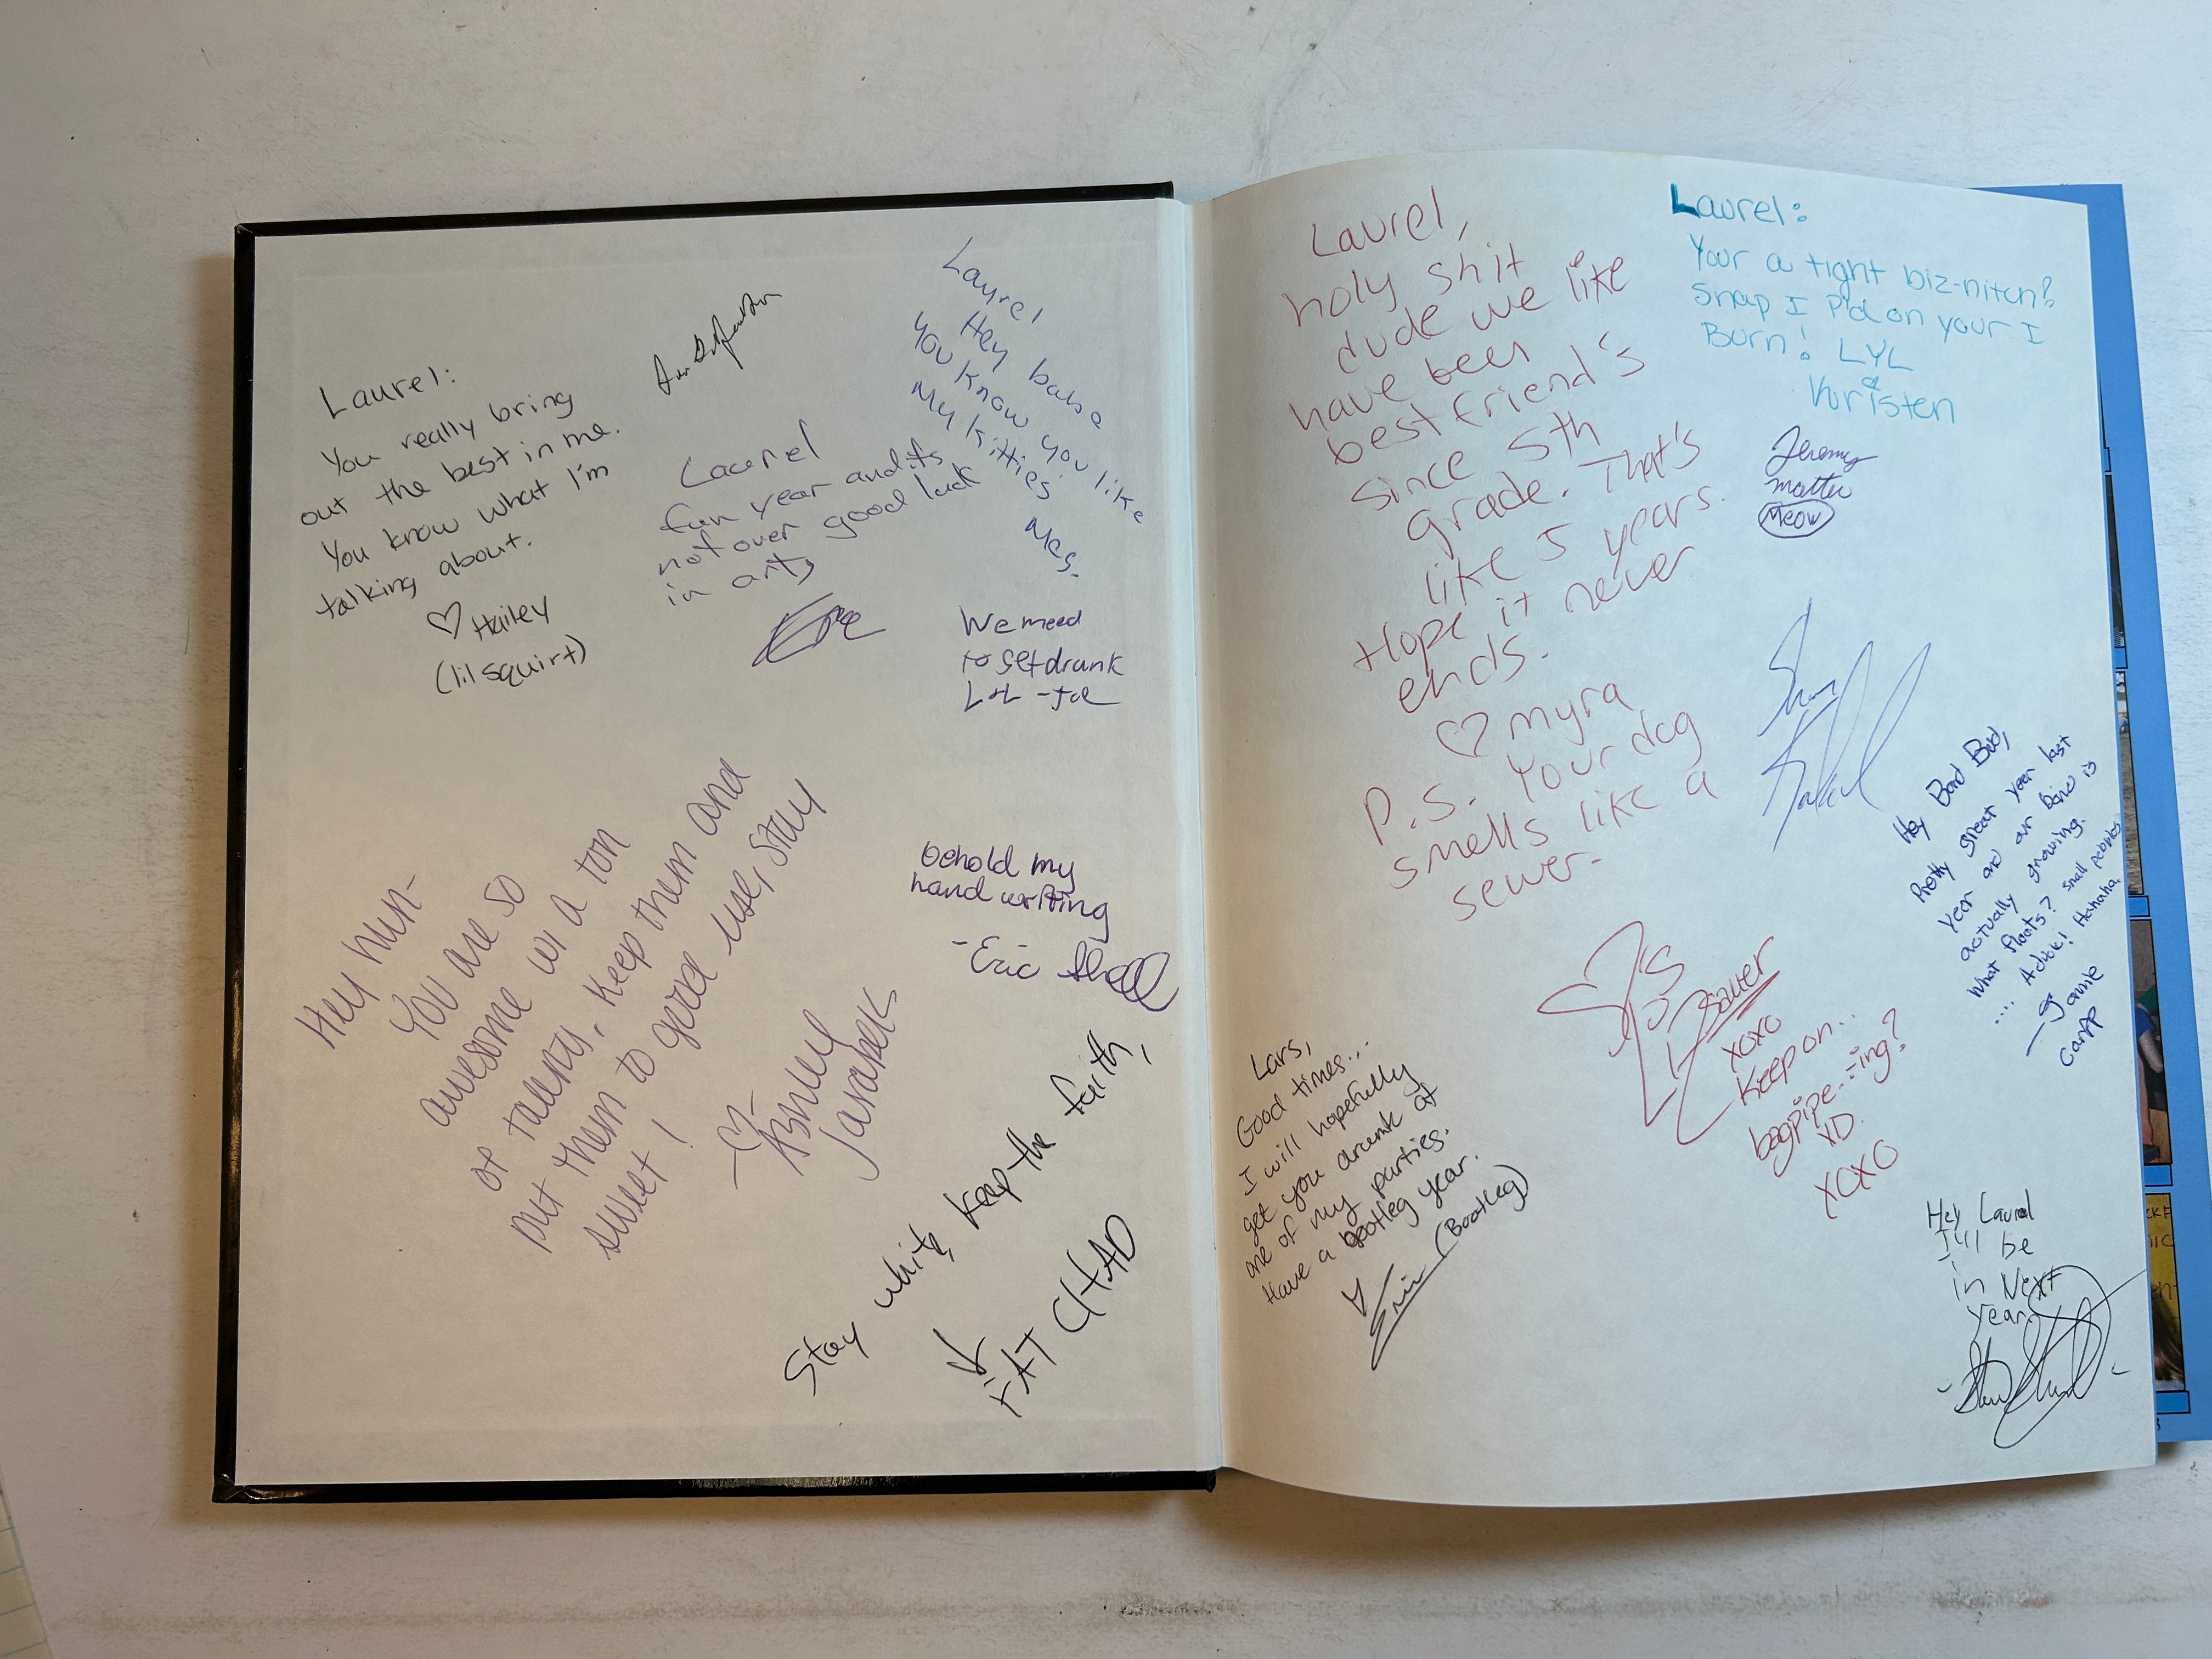 Laurel:
You really bring
out the best in me.
You know what I'm
talking about.
♡ Hailey
(lil squirt)
Laurel
Hey babe
you know you like
My kitties
Yes.
Laurel
fun year and its
not over good luck
in arts
We need
to get drunk
LOL -Joe
Hey hun-
You are so
awesome w/ a ton
of talents, keep them and
put them to good use, stay
sweet!
-♡-
Ashley
Jarabek
behold my
hand writing
-Eric
Stay white, keep the faith,
↓
FAT CHAD
Laurel,
holy shit
dude we like
have been
best friend's
since 5th
grade. That's
like 5 years.
Hope it never
ends.
♡ myra
P.S. Your dog
smells like a
sewer.
Laurel:
Your a tight biz-nitch?
Snap I P'd on your I
Burn! LYL
Kuristen
Jeremy
matter
Meow
Hey Band Bud,
Pretty great year last
year and our band is
actually growing.
What floats? small pebbles
.... Adios! Hahaha
XOXO
Keep on...
bagpipe-:-ing?
XD.
XOXO
Lars,
Good times...
I will hopefully
get you drunk at
one of my parties.
Have a bootleg year.
Eric (Bootleg)
Hey Laurel
I'll be
in Next
year